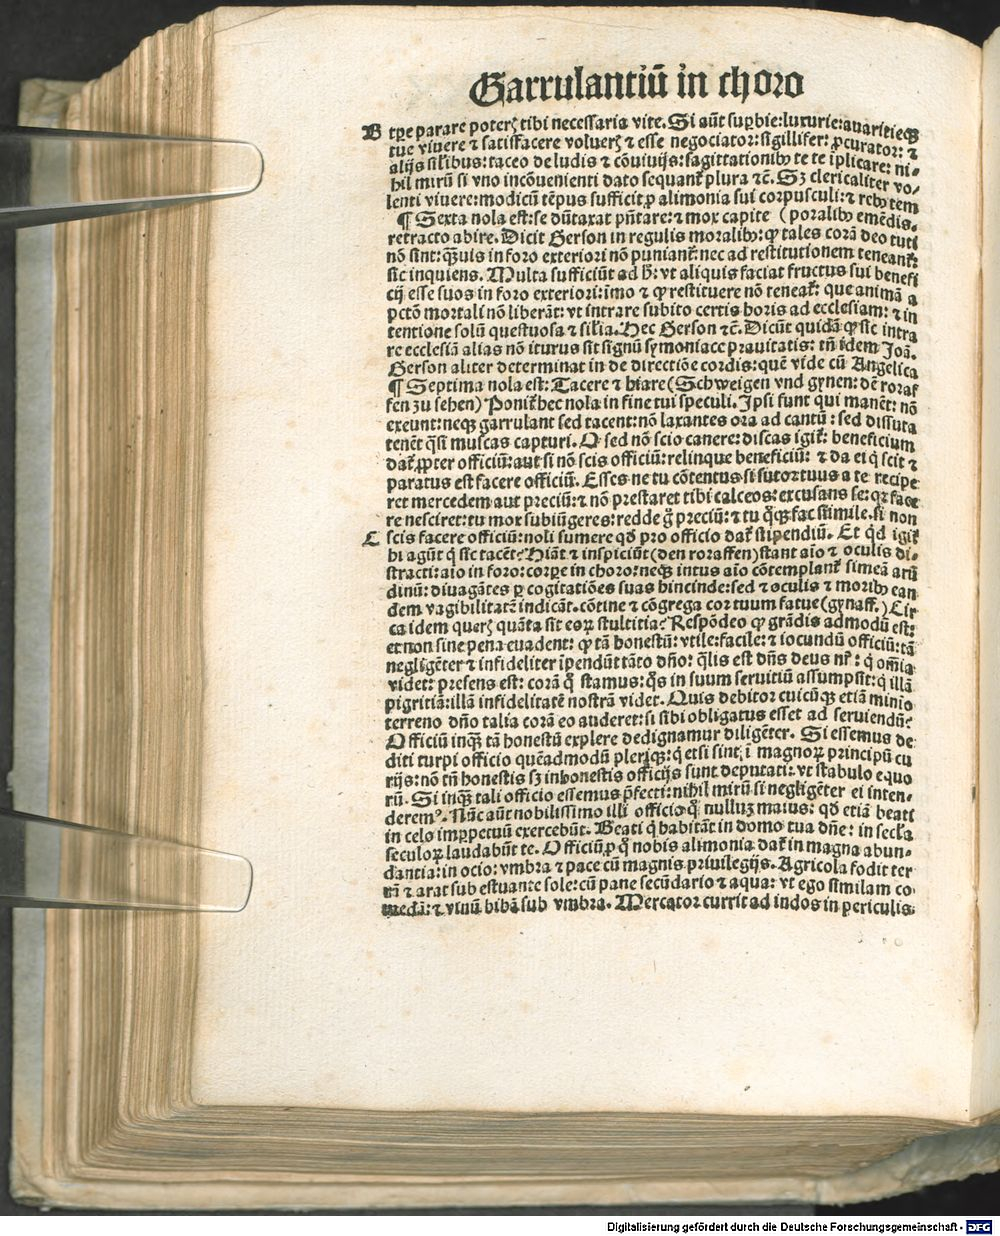 Garrulantiū in choro
B tꝑe parare poterꝭ tibi necessaria vite. Si aūt suꝑbie: luxurie: auaritieqꝫ
tue viuere ⁊ satisfacere volueris ⁊ esse negociator: sigillifer: ꝓcurator: ⁊
alijs silibus: taceo de ludis ⁊ cōuiuijs: sagittationibꝫ te te īplicare: ni-
hil mirū si vno incōuenienti dato sequant᷑ plura ⁊c̄. Sꝫ clericaliter vo-
lenti viuere: modicū tēpus sufficit ꝓ alimonia sui corpusculi: ⁊ rebꝫ tem
¶ Sexta nola est: se dūtaxat pn̄tare: ⁊ mox capite (poralibꝫ emēdis.
retracto abire. Dicit Gerson in regulis moralibꝫ: ꝙ tales corā deo tuti
nō sint: qͣꝫuis in foro exteriori nō puniant᷑: nec ad restitutionem teneant᷑:
sic inquiens. Multa sufficiūt ad h̄: vt aliquis faciat fructus sui benefi
cij esse suos in foro exteriori: īmo ⁊ ꝙ restituere nō teneat᷑: que animā a
pctō mortali nō liberāt: vt intrare subito certis horis ad ecclesiam: ⁊ in
tentione solū questuosa ⁊ silia. Hec Gerson ⁊c̄. Dicūt quidā ꝙ sic intra
re ecclesiā alias nō iturus sit signū symoniace prauitatis: tn̄ idem Joā.
Gerson aliter determinat in de directiōe cordis: quē vide cū Angelica
¶ Septima nola est: Tacere ⁊ hiare (Schweigen vnd gynen: dē roraf
fen zu sehen) Ponit᷑ hec nola in fine tui speculi. Ipsi sunt qui manēt: nō
exeunt: neqꝫ garrulant sed tacent: nō laxantes ora ad cantū: sed dissuta
tenēt qͣsi muscas capturi. O sed nō scio canere: discas igit᷑: beneficium
dat᷑ ꝓpter officiū: aut si nō scis officiū: relinque beneficiū: ⁊ da ei qͥ scit ⁊
paratus est facere officiū. Esses ne tu cōtentus si sutor tuus a te recipe
ret mercedem aut preciū: ⁊ nō prestaret tibi calceos: excusans se: qꝛ face
re nesciret: tu mox subiūgeres: redde gͦ preciū: ⁊ tu qͦqꝫ fac simile. si non
C scis facere officiū: noli sumere qd̄ pro officio dat᷑ stipendiū. Et qͥd igit᷑
hi agūt qͥ sic tacēt? Hiāt ⁊ inspiciūt (den roraffen) stant aīo ⁊ oculis di-
stracti: aīo in foro: corꝑe in choro: neqꝫ intus aīo cōtemplant᷑ simeā aut
dinū: diuagātes ꝑ cogitatiōes suas hincinde: sed ⁊ oculis ⁊ moribꝫ ean
dem vagibilitatē indicāt. cōtine ⁊ cōgrega cor tuum fatue (gynaff.) Cir
ca idem querꝭ quāta sit eoꝝ stultitia? Respōdeo ꝙ grādis admodū est:
et non sine pena euadent: ꝙ tā honestū: vtile: facile: ⁊ iocundū officiū: tā
negligēter ⁊ infideliter īpendūt tāto dn̄o: qͣlis est dn̄s deus nr̄: qͥ om̄ia
videt: presens est: corā qͦ stamus: qͦs in suum seruitiū assumpsit: qͥ illā
pigritiā: illā infidelitatē nostrā videt. Quis debitor cuicūqꝫ etiā minīo
terreno dn̄o talia corā eo auderet: si sibi obligatus esset ad seruiendū?
Officiū inqͣꝫ tā honestū explere dedignamur diligēter. Si essemus de
diti turpi officio quēadmodū pleriqꝫ: qͥ etsi sint ī magnoꝝ principū cu
rijs: nō tn̄ honestis sꝫ inhonestis officijs sunt deputati: vt stabulo equo
rū. Si inqͣꝫ tali officio essemus p̄fecti: nihil mirū si negligēter ei inten-
deremꝰ. Nūc aūt nobilissimo illi officio qͦ nulluꝫ maius: qd̄ etiā beati
in celo imꝑpetuū exercebūt. Beati qͥ habitāt in domo tua dn̄e: in secl̄a
seculoꝝ laudabūt te. Officiū ꝓ qͦ nobis alimonia dat᷑ in magna abun-
dantia: in ocio: vmbra ⁊ pace cū magnis priuilegijs. Agricola fodit ter
rā ⁊ arat sub estuante sole: cū pane secūdario ⁊ aqua: vt ego similam co
medā: ⁊ vinū bibā sub vmbra. Mercator currit ad indos in periculis
Digitalisierung gefördert durch die Deutsche Forschungsgemeinschaft - DFG